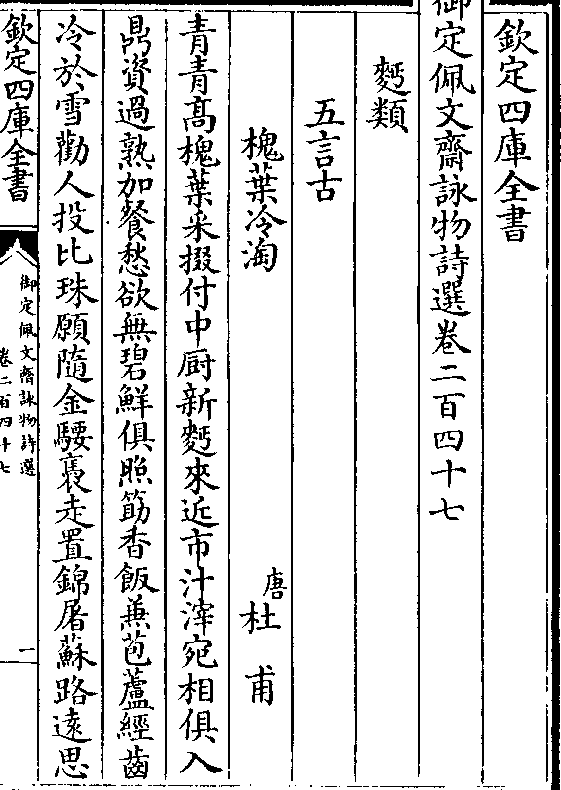 欽定四庫全書
御定佩文齋詠物詩選卷二百四十七
麪類
五言古
槐葉冷淘 唐杜甫
青青高槐葉采掇付中厨新麪來近市汁滓宛相俱入
鼎資過熟加餐愁欲無碧鮮俱照筯香飯兼苞蘆經齒
冷於雪勸人投比珠願隨金騕褭走置錦屠蘇路遠思
欽定四庫全書
御定佩文齋詠物詩選
卷二百四十七
一